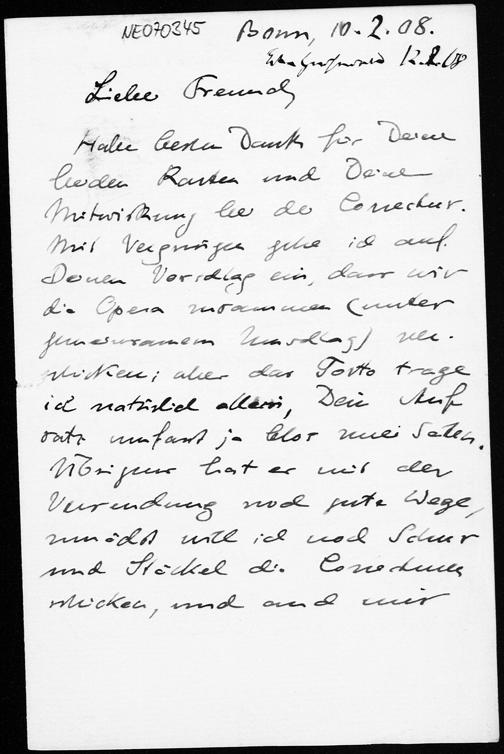 NE070345
Bonn, 10.2.08.
12.2.08
Lieber Freund,
Habe besten Dank für Deine
beiden Karten und Deine
Mitwirkung bei der Correctur.
Mit Vergnügen gehe ich auf
Deinen Vorschlag ein, dass wir
die Opera zusammen (unter
gemeinsamem Umschlag) ver-
schicken; aber das Porto trage
ich natürlich allein, Dein Auf
satz umfasst ja blos zwei Seiten.
Übrigens hat es mit der
Versendung noch gute Wege,
zunächst will ich noch Schur
und Stäckel die Correcturen
schicken, und auch mir